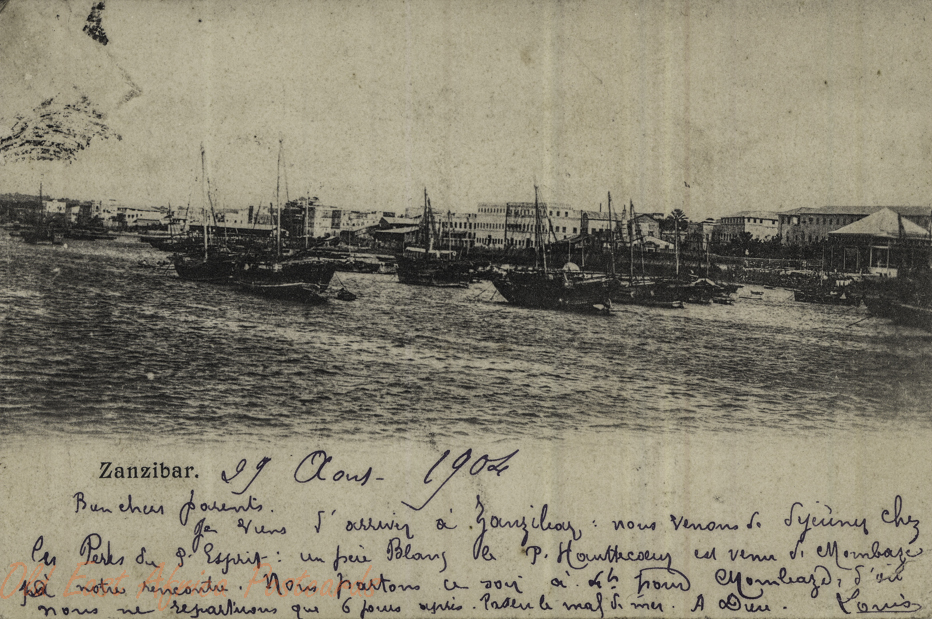 Zanzibar. 29 Aout - 1904
Bien chers parents.
Je viens d'arriver à Zanzibar : nous venons de déjeuner chez
les Pères du S. Esprit : un père Blanc le P. Hauttecoeur est venu de Mombaze
à notre rencontre. Nous partons ce soir à 4h pour Mombaze, d'où
nous ne repartirons que 6 jours après. le mal de mer. A Dieu. Louis
Old East Africa Postcards